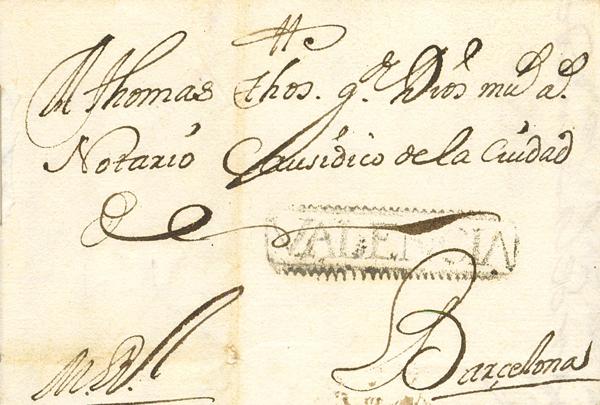 A Thomas thos. g.e Dios m.s a.s
Notario Causidico de la Ciudad
VALENCIA
Barçelona